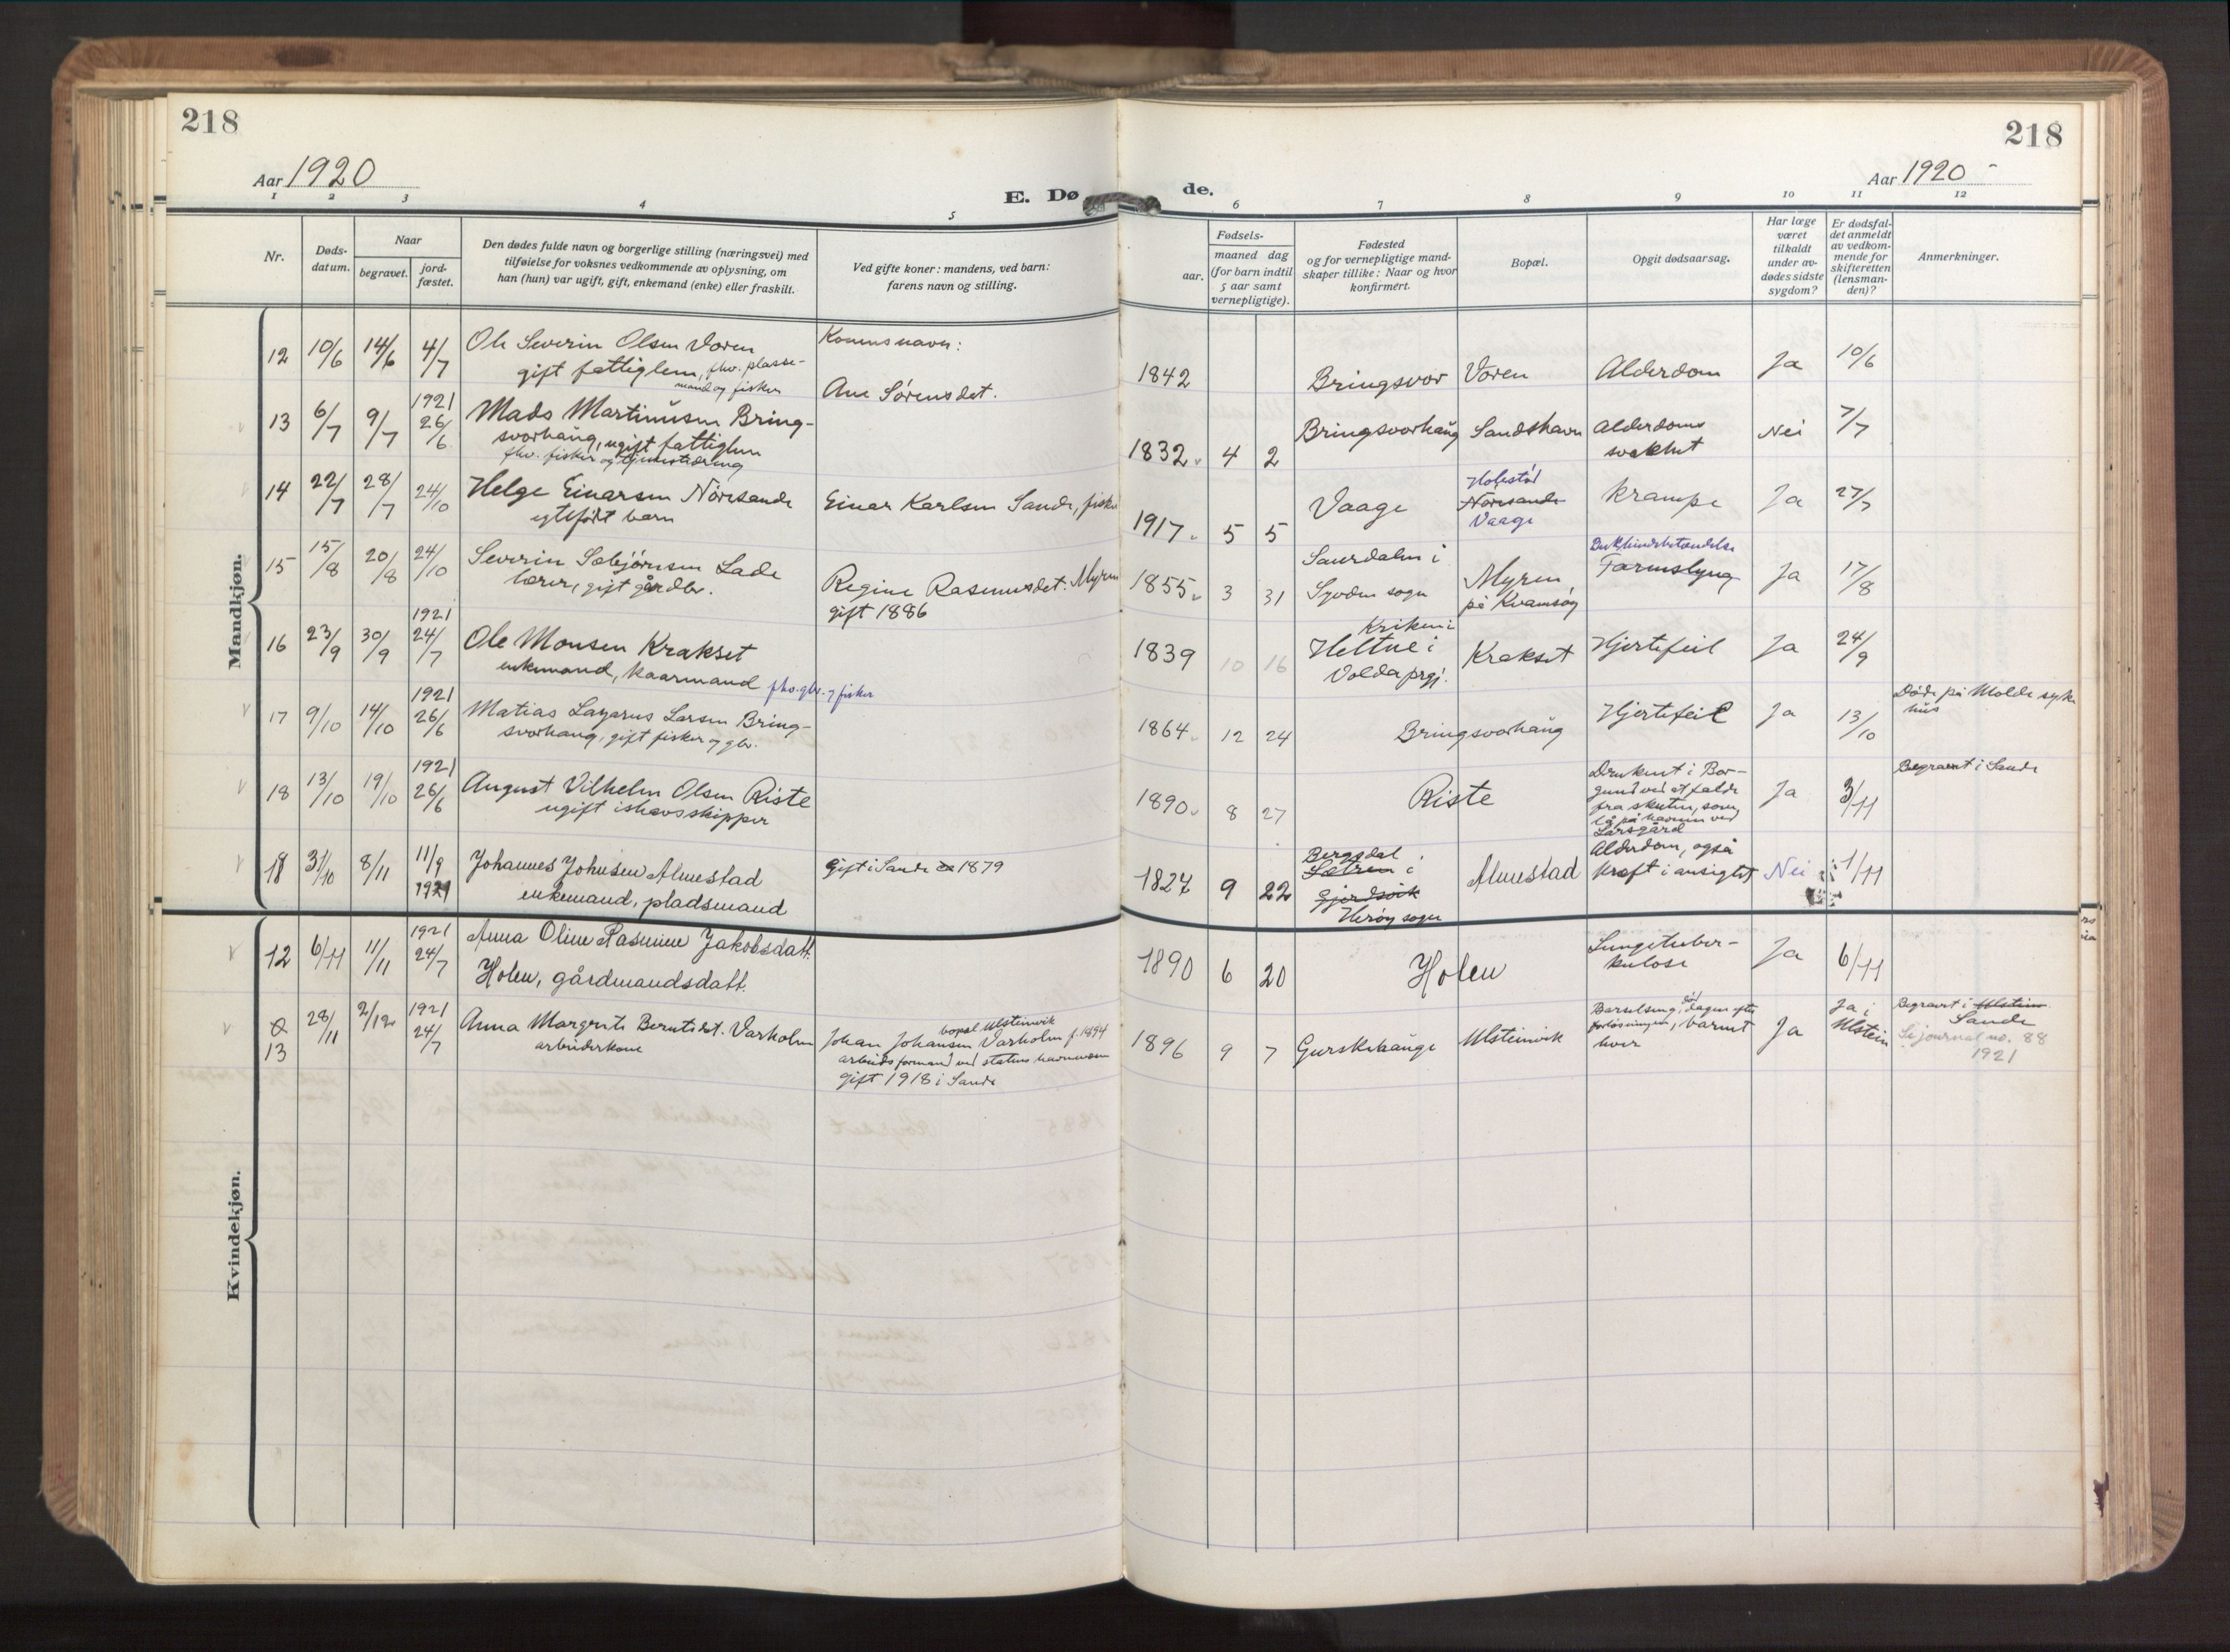 218
218
Aar 1920
Aar 1920
E. Dø
de.
1 2 3 4 5 6 7 8 9 10 11 12
Nr.
Døds-
datum.
Naar
begravet.
jord-
fæstet.
Den dødes fulde navn og borgerlige stilling (næringsvei) med
tilføielse for voksnes vedkommende av oplysning, om
han (hun) var ugift, gift, enkemand (enke) eller fraskilt.
Ved gifte koner: mandens, ved barn:
farens navn og stilling.
aar.
Fødsels-
maaned dag
(for barn indtil
5 aar samt
vernepligtige).
Fødested
og for vernepligtige mand-
skaper tillike: Naar og hvor
konfirmert.
Bopæl.
Opgit dødsaarsag.
Har læge
været
tilkaldt
under av-
dødes sidste
sygdom?
Er dødsfal-
det anmeldt
av vedkom-
mende for
skifteretten
(lensman-
den)?
Anmerkninger.
Mandkjøn.
12 10/6 14/6 4/7 Ole Severin Olsen Voren
gift fattiglem, fhv. plasse-
mand og fisker
Konens navn:
Ane Sørensdet.
1842 Bringsvor Voren Alderdom Ja 10/6
13 6/7 9/7 1921 26/6 Mads Martinusen Bring-
svorhaug, ugift fattiglem
fhv. fisker og
1832 4 2 Bringsvorhaug Sandshavn Alderdoms
svækket Nei 7/7
14 22/7 28/7 24/10 Helge Einarsen Nöresande
egtefödt barn
Einar Karlsen Sande, fisker
1917 5 5 Vaage Nöresande
Vaage Krampe Ja 27/7
15 15/8 20/8 24/10 Severin Sæbjørnsen Lade
lærer, gift gårdbr.
Regine Rasmusdet. Myren
gift 1886
1855 3 31 Saurdalen i
Syvden sogn Myren,
på Kvamsøy Bukhindebetændelse
Tarmslyng Ja 17/8
16 23/9 30/9 1921 24/7 Ole Monsen Krakset
enkemand, kaarmand fhv. gbr. og fisker
1839 10 16 Kriken i
Heltne i
Volda prgj. Krakset Hjertefeil Ja 24/9
17 9/10 14/10 1921 26/6 Matias Lazarus Larsen Bring-
svorhaug, gift fisker og gbr.
1864 12 24 Bringsvorhaug Hjertefeil Ja 13/10 Döde på Molde syke
hus
18 13/10 19/10 1921 26/6 August Vilhelm Olsen Riste
ugift ishavsskipper
1890 8 27 Riste Druknet i Bor-
gund ved at falde
fra skuten, som
lå på havnen ved
Larsgård Ja 3/11 Begravet i Sande
18 31/10 8/11 11/9 1921 Johannes Johnsen Almestad
enkemand, pladsmand
Gift i Sande 1879
1827 9 22 Bergsdal
Sætren i
Gjerdsvik
Herøy sogn Almestad Alderdom, også
kræft i ansigtet Nei 1/11
Kvindekjøn.
12 6/11 11/11 1921 24/7 Anna Oline Rasmine Jakobsdatt.
Holen, gårdmandsdatt.
1890 6 20 Holen Lungetuber-
kulose Ja 6/11
13 28/11 2/12 1921 24/7 Anna Margrete Berntsdt. Varholm
arbeiderkone
bopæl Ulsteinvik
Johan Johansen Varholm f. 1894
arbeidsformand ved statens havnevæsen
gift 1918 i Sande
1896 9 7 Gurskehauge Ulsteinvik Barselseng, dagen efter
forløsningen, barnet
lever Ja Ja i
Ulstein Begravet i Ulstein
Sande
Se journal no. 88
1921